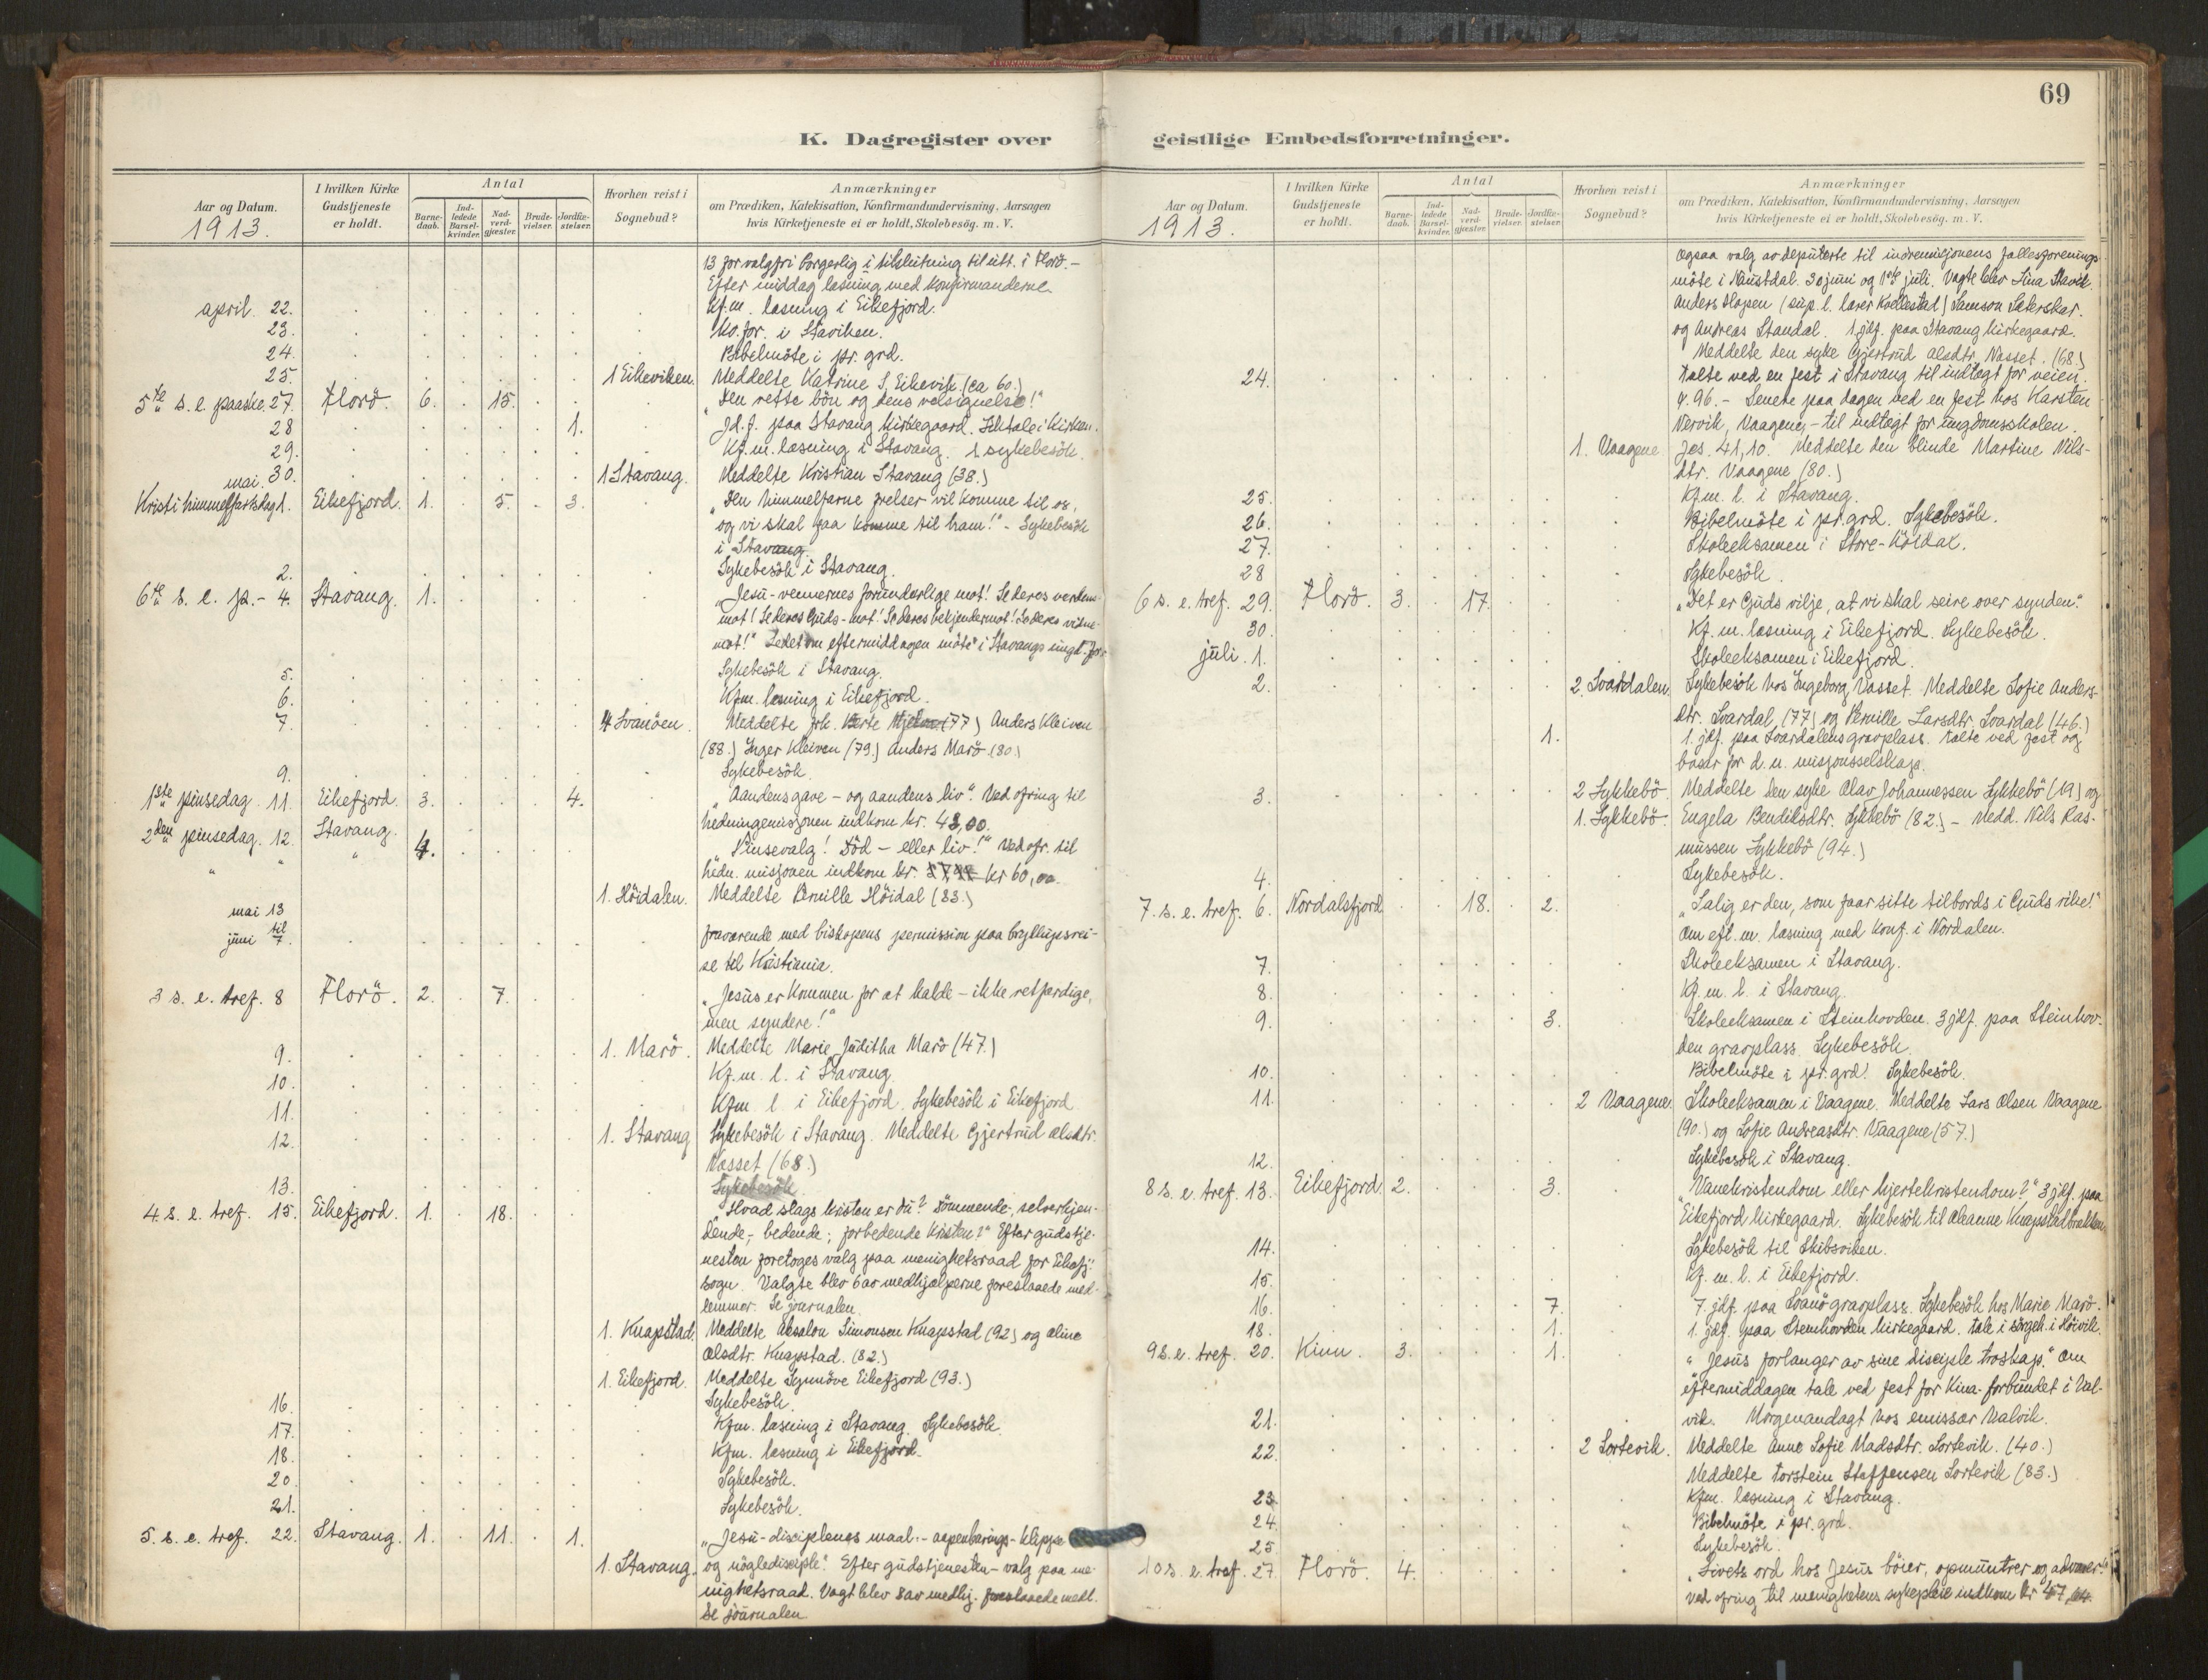 69
K. Dagregister over geistlige Embedsforretninger.
Aar og Datum.
1913.
I hvilken Kirke Gudstjeneste er holdt.
Antal
Barne-daab.
Ind-ledede Barsel-kvinder.
Nad-verd-gjæster.
Brude-vielser.
Jordfæ-stelser.
Hvorhen reist i Sognebud?
Anmærkninger
om Prædiken, Katekisation, Konfirmandundervisning, Aarsagen
hvis Kirketjeneste ei er holdt, Skolebesög. m. V.
13 for valgfri borgerlig i tilslutning til utt. i Florö. -
Efter middag læsning med konfirmanderne.
april. 22. Kf.m. læsning i Eikefjord.
23. Kg. for. i Staviken.
24. Bibelmöte i pr. grd.
25. 1 Eikeviken. Meddelte Katrine S. Eikevik (ca 60.)
5te s. e. paaske. 27. Florö. 6. 15. "Den rette bön og dens velsignelse!"
28 1. Jd. f. paa Stavang kirkegaard. Liktale i kirken.
29. Kf.m. læsning i Stavang. 1 sykebesök.
30. 1 Stavang. Meddelte Kristian Stavang (38.)
mai.
Kristi himmelfartsdag 1. Eikefjord. 1. 5. 3. "Den himmelfarne frelser vil komme til os,
og vi skal faa komme til ham!" - Sykebesök
i Stavang.
2. Sykebesök i Stavang.
6te s. e. p. - 4. Stavang. 1. "Jesu-vennernes forunderlige mot! Se deres verdens-
mot! Se deres Guds-mot! Se deres bekjendermot! Se deres vidne-
mot!" Ledet om eftermiddagen möte i Stavangs ungd. for.
5. Sykebesök i Stavang.
6. Kfm. læsning i Eikefjord.
7. 4 Svanöen. Meddelte frk. Berte (77) Anders Kleiven
(88.) Inger Kleiven (79.) Anders Marö (80.)
9. Sykebesök.
1ste pinsedag. 11. Eikefjord. 3. 4. "Aandens gave - og aandens liv". Ved ofring til
hedningemisjonen indkom kr. 48,00.
2den pinsedag. 12. Stavang. 4. "Pinsevalg! Död - eller liv!" Ved ofr. til
" " hedn. misjonen indkom kr. kr 60,00.
" 1. Höidalen. Meddelte Pernille Höidal (83.)
mai 13
til
juni 7. fraværende med biskopens permission paa bryllupsrei-
se til Kristiania.
3 s. e. tref. 8 Florö. 2. 7. "Jesus er kommen for at kalde - ikke retfærdige,
men syndere!"
9. 1. Marö. Meddelte Marie Juditha Marö (47.)
10. Kf.m. l. i Stavang.
11. Kfm l. i Eikefjord. Sykebesök i Eikefjord
12. 1. Stavang Sykebesök i Stavang. Meddelte Gjertrud Olsdtr.
Vasset (68.)
13. Sykebesök
4. s. e. tref. 15. Eikefjord. 1. 18. "Hvad slags kristen er du? Dömmende-, selverkjen-
dende-, bedende; forbedende kristen?" Efter gudstje-
nesten foretoges valg paa menighetsraad for Eikefj.
sogn. Valgte blev 6 av medhjælperne foreslaaede med-
lemmer. Se journalen.
1. Knapstad. Meddelte Absalon Simonsen Knapstad (92) og Oline
Olsdtr. Knapstad. (82.)
1. Eikefjord. Meddelte Synnöve Eikefjord (93.)
16. Sykebesök.
17. Kfm. læsning i Stavang. Sykebesök.
18. Kfm. læsning i Eikefjord.
20. Sykebesök.
21. Sykebesök.
5. s. e. tref. 22. Stavang. 1. 11. 1. "Jesu-disciplenes maal: - aapenbarings- klippe
1. Stavang. og nögledisciple." Efter gudstjenesten - valg paa me-
nighetsraad. Valgt blev 8 av medhj. foreslaaede medl.
Se journalen.
Aar og Datum.
1913.
I hvilken Kirke Gudstjeneste er holdt.
Antal
Barne-daab.
Ind-ledede Barsel-kvinder.
Nad-verd-gjæster.
Brude-vielser.
Jordfæ-stelser.
Hvorhen reist i Sognebud?
Anmærkninger
om Prædiken, Katekisation, Konfirmandundervisning, Aarsagen
hvis Kirketjeneste ei er holdt, Skolebesög. m. V.
Ogsaa valg av deputerte til indremisjonens fællesforenings-
möte i Naustdal. 30 juni og 1ste juli. Valgte blev Lina Stavik.
Anders Hopen (sup. l. lærer Kollestad) Samson Sæterskar.
og Andreas Standal. 1 jdf. paa Stavang kirkegaard.
Meddelte den syke Gjertrud Olsdtr. Vasset. (68.)
24. Talte ved en fest i Stavang til indtægt for veien.
4. 96. - Senere paa dagen ved en fest hos Karsten
Nervik, Vaagene, - til indtægt for ungdomsskolen.
1. Vaagene Jes. 41,10. Meddelte den blinde Martine Nils-
dtr. Vaagene (80.)
25. Kf.m. l. i Stavang.
26. Bibelmöte i pr.grd. Sykebesök.
27. Skoleeksamen i Store-Höidal.
28 Sykebesök.
6 s. e. tref. 29. Florö. 3. 17. "Det er Guds vilje, at vi skal seire over synden."
30. Kf. m. læsning i Eikefjord. Sykebesök.
juli. 1. Skoleeksamen i Eikefjord.
2. 2. Svardalen. Sykebesök hos Ingeborg Vasset. Meddelte Sofie Anders-
dtr. Svardal, (77) og Pernille Larsdtr. Svardal (46.)
1. 1. jdf. paa Svardalens gravplass. Talte ved fest og
basar for d. n. misjonsselskap.
3. 2 Sykkebö. Meddelte den syke Olav Johannessen Sykkebö (19) og
1. Sykkebö. Engela Bendiksdtr. Sykkebö (82.) - Medd. Nils Ras-
mussen Sykkebö (94.)
4. Sykebesök.
7. s. e. tref. 6. Nordalsfjord 18. 2. "Salig er den, som faar sitte tilbords i Guds rike!"
Om eft. m. læsning med konf. i Nordalen.
7. Skoleeksamen i Stavang.
8. Kf.m. l. i Stavang.
9. 3. Skoleeksamen i Steinhovden. 3 jdf. paa Steinhov-
den gravplass. Sykebesök.
10. Bibelmöte i pr.grd. Sykebesök.
11. 2 Vaagene. Skoleeksamen i Vaagene. Meddelte Lars Olsen Vaagene
(90.) og Sofie Andreasdtr. Vaagene (57.)
12. Sykebesök i Stavang.
8 s. e. tref. 13. Eikefjord. 2. 3. "Vanekristendom eller hjertekristendom?" 3 jdf. paa
Eikefjord kirkegaard. Sykebesök til Oleanne Knapstadbrekken
14. Sykebesök til Skibsviken.
15. Kf. m. l. i Eikefjord.
16. 7. 7. jdf. paa Svanö gravplass. Sykebesök hos Marie Marö.
18. 1. 1. jdf. paa Steinhovden kirkegaard. tale i sörgeh. i Höivik
9 s. e. tref. 20. Kinn. 3. 1. "Jesus forlanger av sine disciple troskap." Om
eftermiddagen tale ved fest for Kina-forbundet i Val-
vik. Morgenandagt hos emissær Valvik.
21.
22. 2 Sortevik. Meddelte Anne Sofie Madsdtr. Sortevik. (40.)
Meddelte Torstein Steffensen Sortevik (83.)
23. Kfm. læsning i Stavang.
24. Bibelmöte i pr. grd.
25 Sykebesök.
10 s. e. tref. 27. Florö. 4. "Livets ord hos Jesus böier, opmuntrer og advarer."
Ved ofring til menighetens sykepleie indkom kr 47,